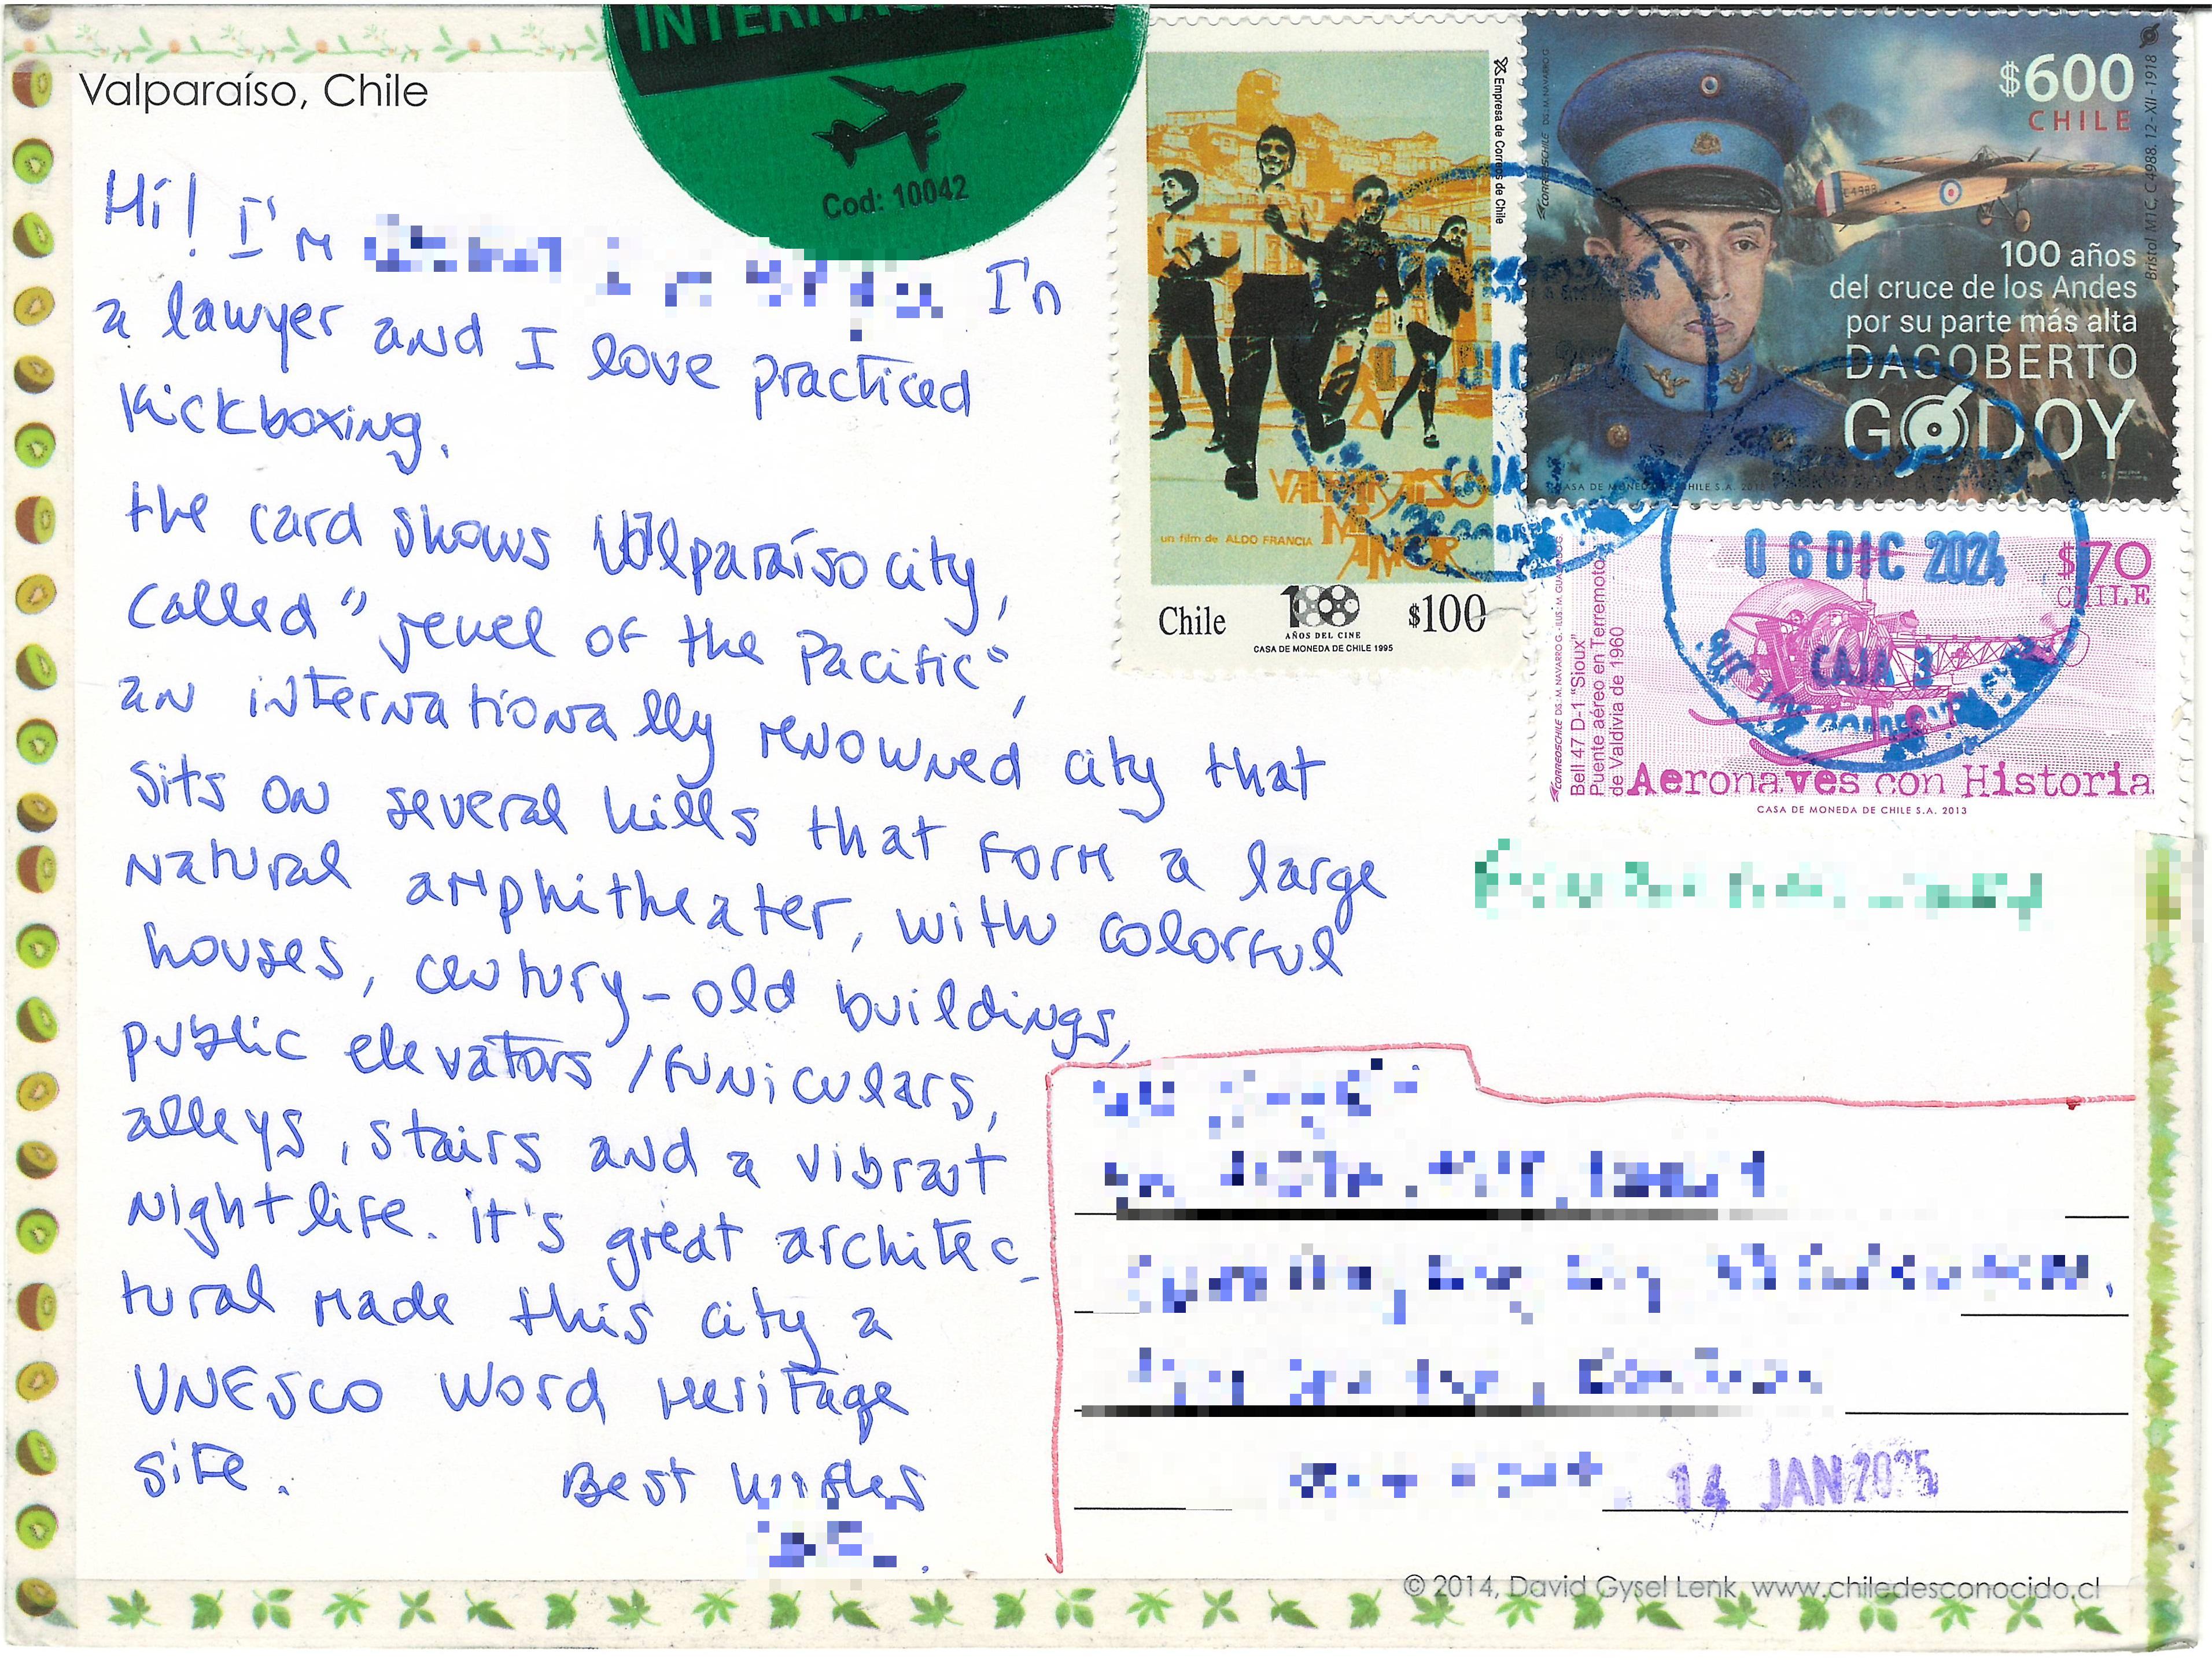 Valparaíso, Chile
Cod: 10042
Hi! I'm
I'm
a lawyer and I love practiced
Kickboxing.
the card shows Valparaíso city,
called "jewel of the Pacific",
an internationally renowned city that
sits on several hills that form a large
natural amphitheater, with colorful
houses, century-old buildings,
public elevators /funiculars,
alleys, stairs and a vibrant
nightlife. it's great architec_
tural made this city a
UNESCO Word Heritage
site.
Best wishes
Empresa de Correos de Chile
VALPARAISO
MI
AMOR
un film de ALDO FRANCIA
Chile 100 $100
AÑOS DEL CINE
CASA DE MONEDA DE CHILE 1995
$600
CHILE
Bristol M1C, C4988. 12-XII-1918
CORREOSCHILE DIS.: M. NAVARRO G.
C4988
100 años
del cruce de los Andes
por su parte más alta
DAGOBERTO
GODOY
CASA DE MONEDA DE CHILE S.A.
06 DIC 2024
CAJA 3
$70
CHILE
Bell 47 D-1 "Sioux"
Puente aéreo en Terremoto
de Valdivia de 1960
Aeronaves con Historia
CASA DE MONEDA DE CHILE S.A. 2013
14 JAN 2025
© 2014, David Gysel Lenk www.chiledesconocido.cl